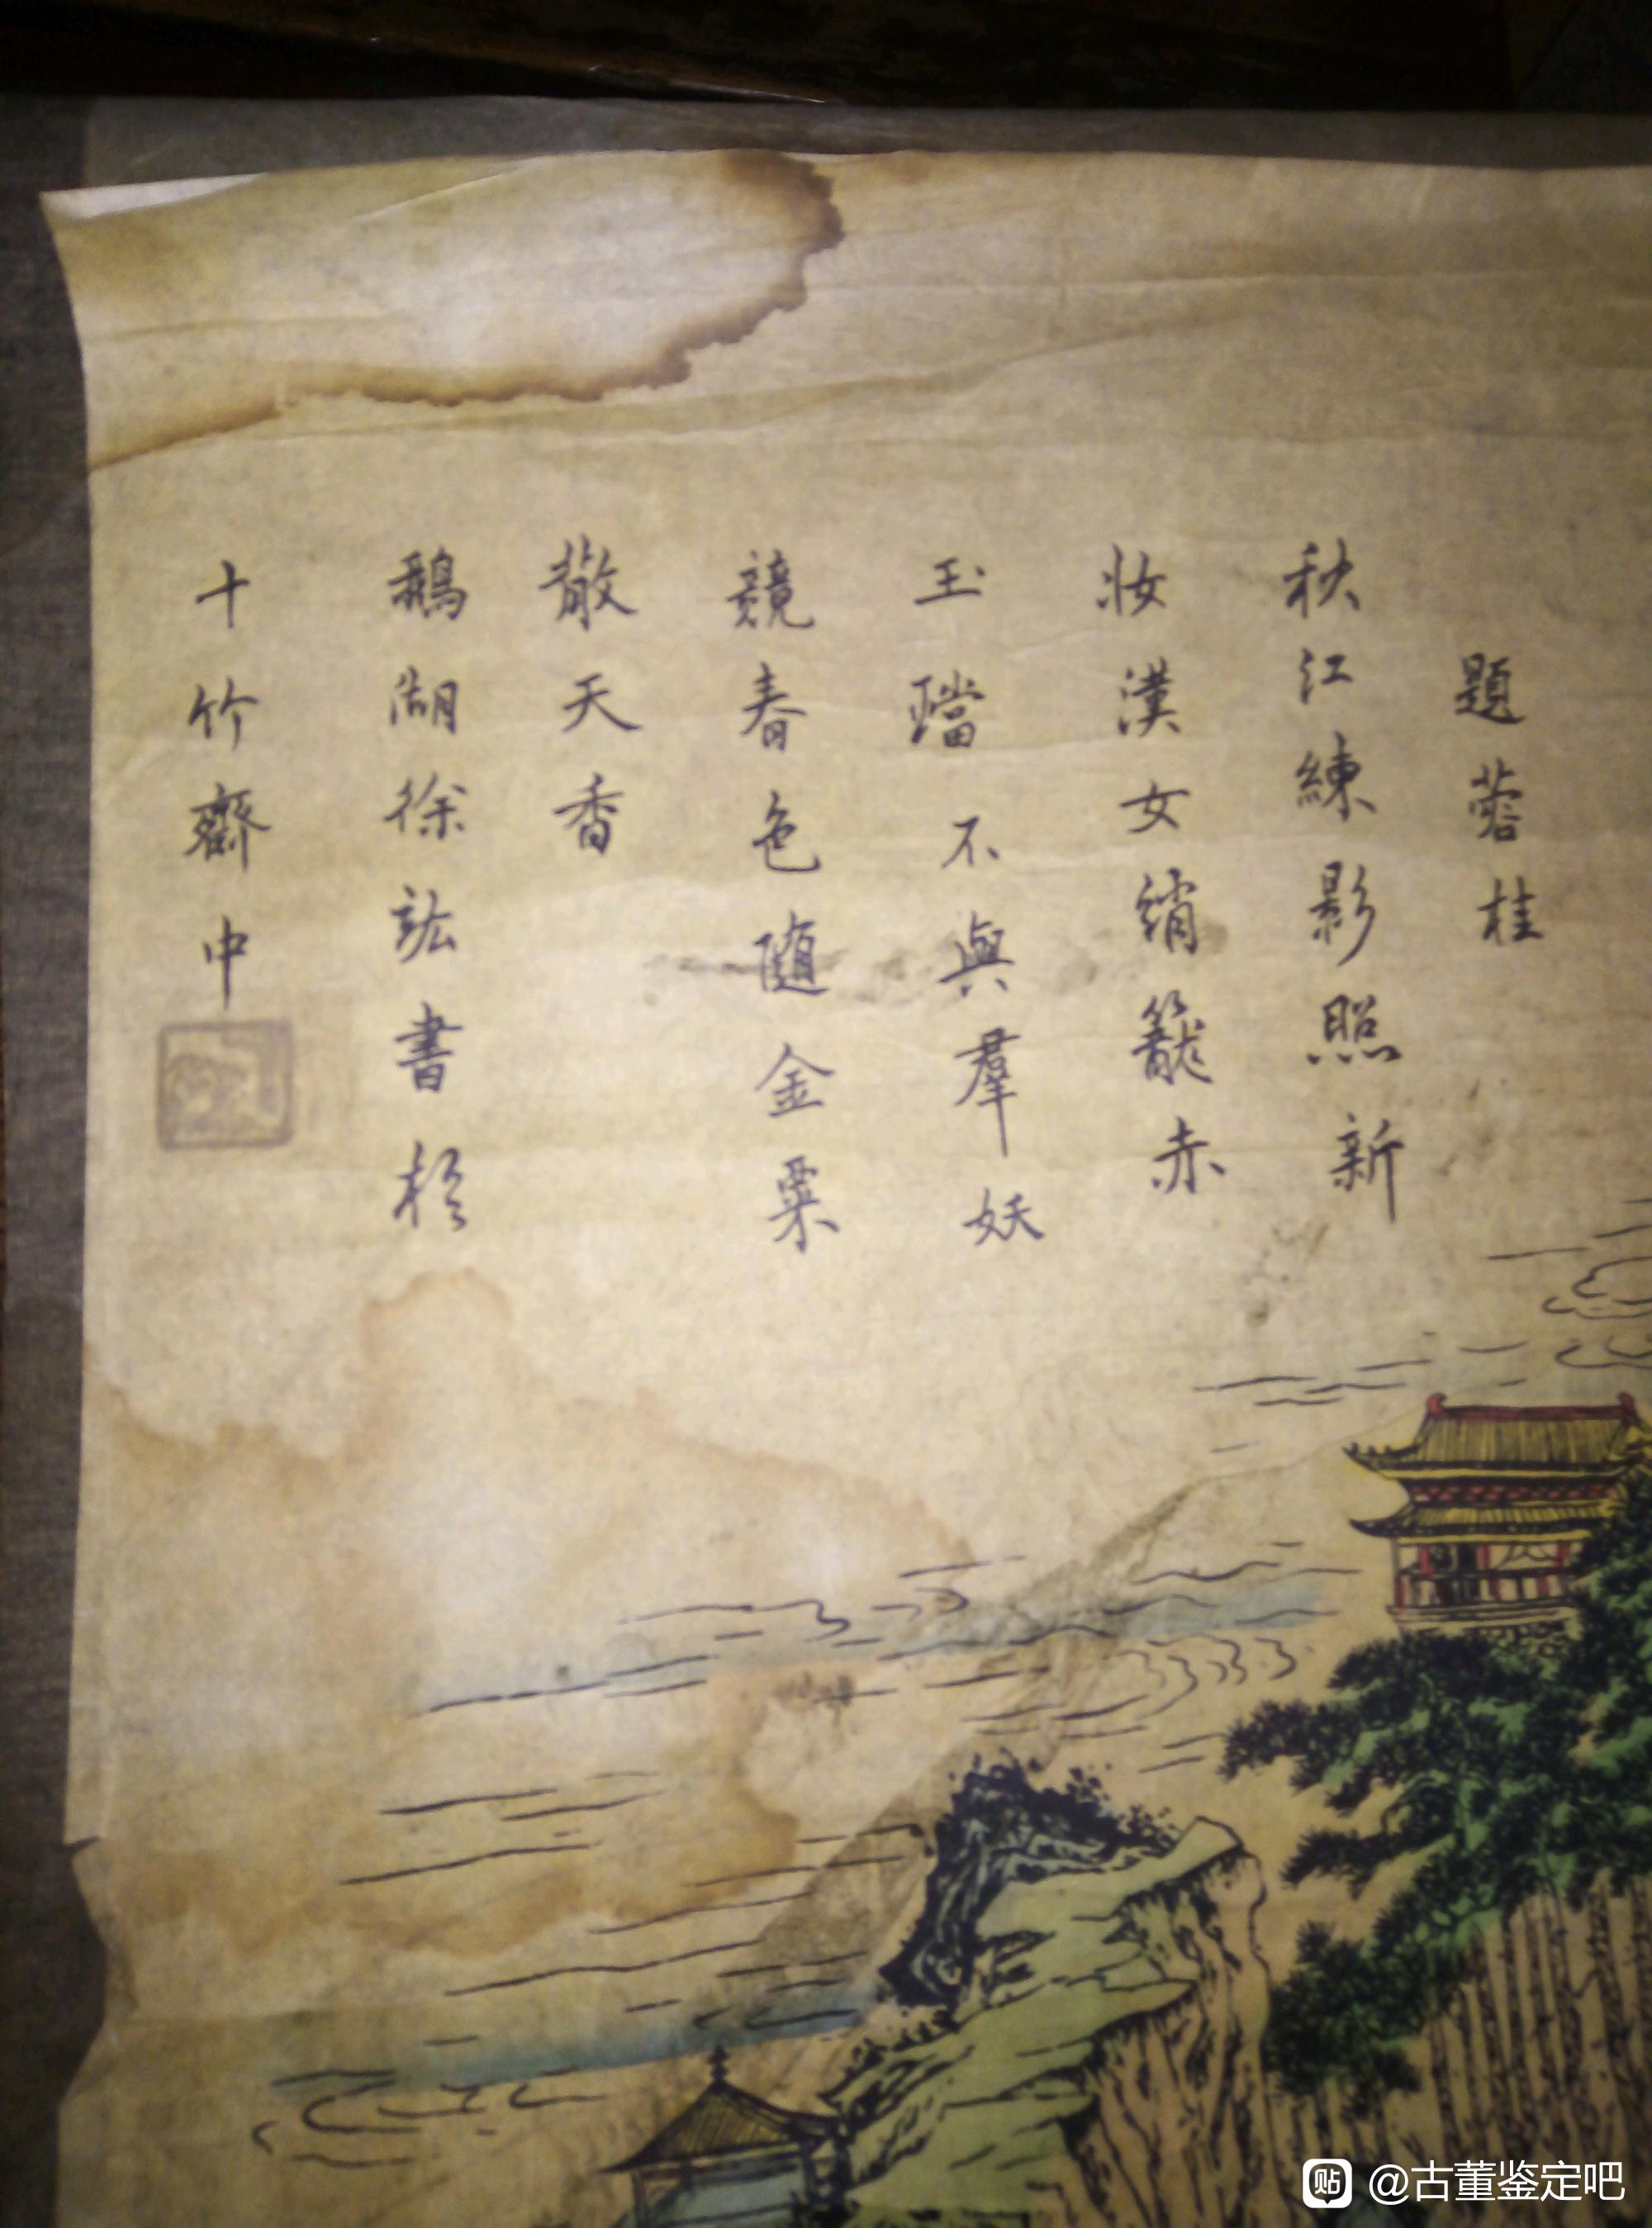 題蓉桂
秋江練影照新
妝漢女綃籠赤
玉璫不與羣妖
競春色随金粟
散天香
鵝湖徐訟書於
十竹齋中
贴 @古董鉴定吧